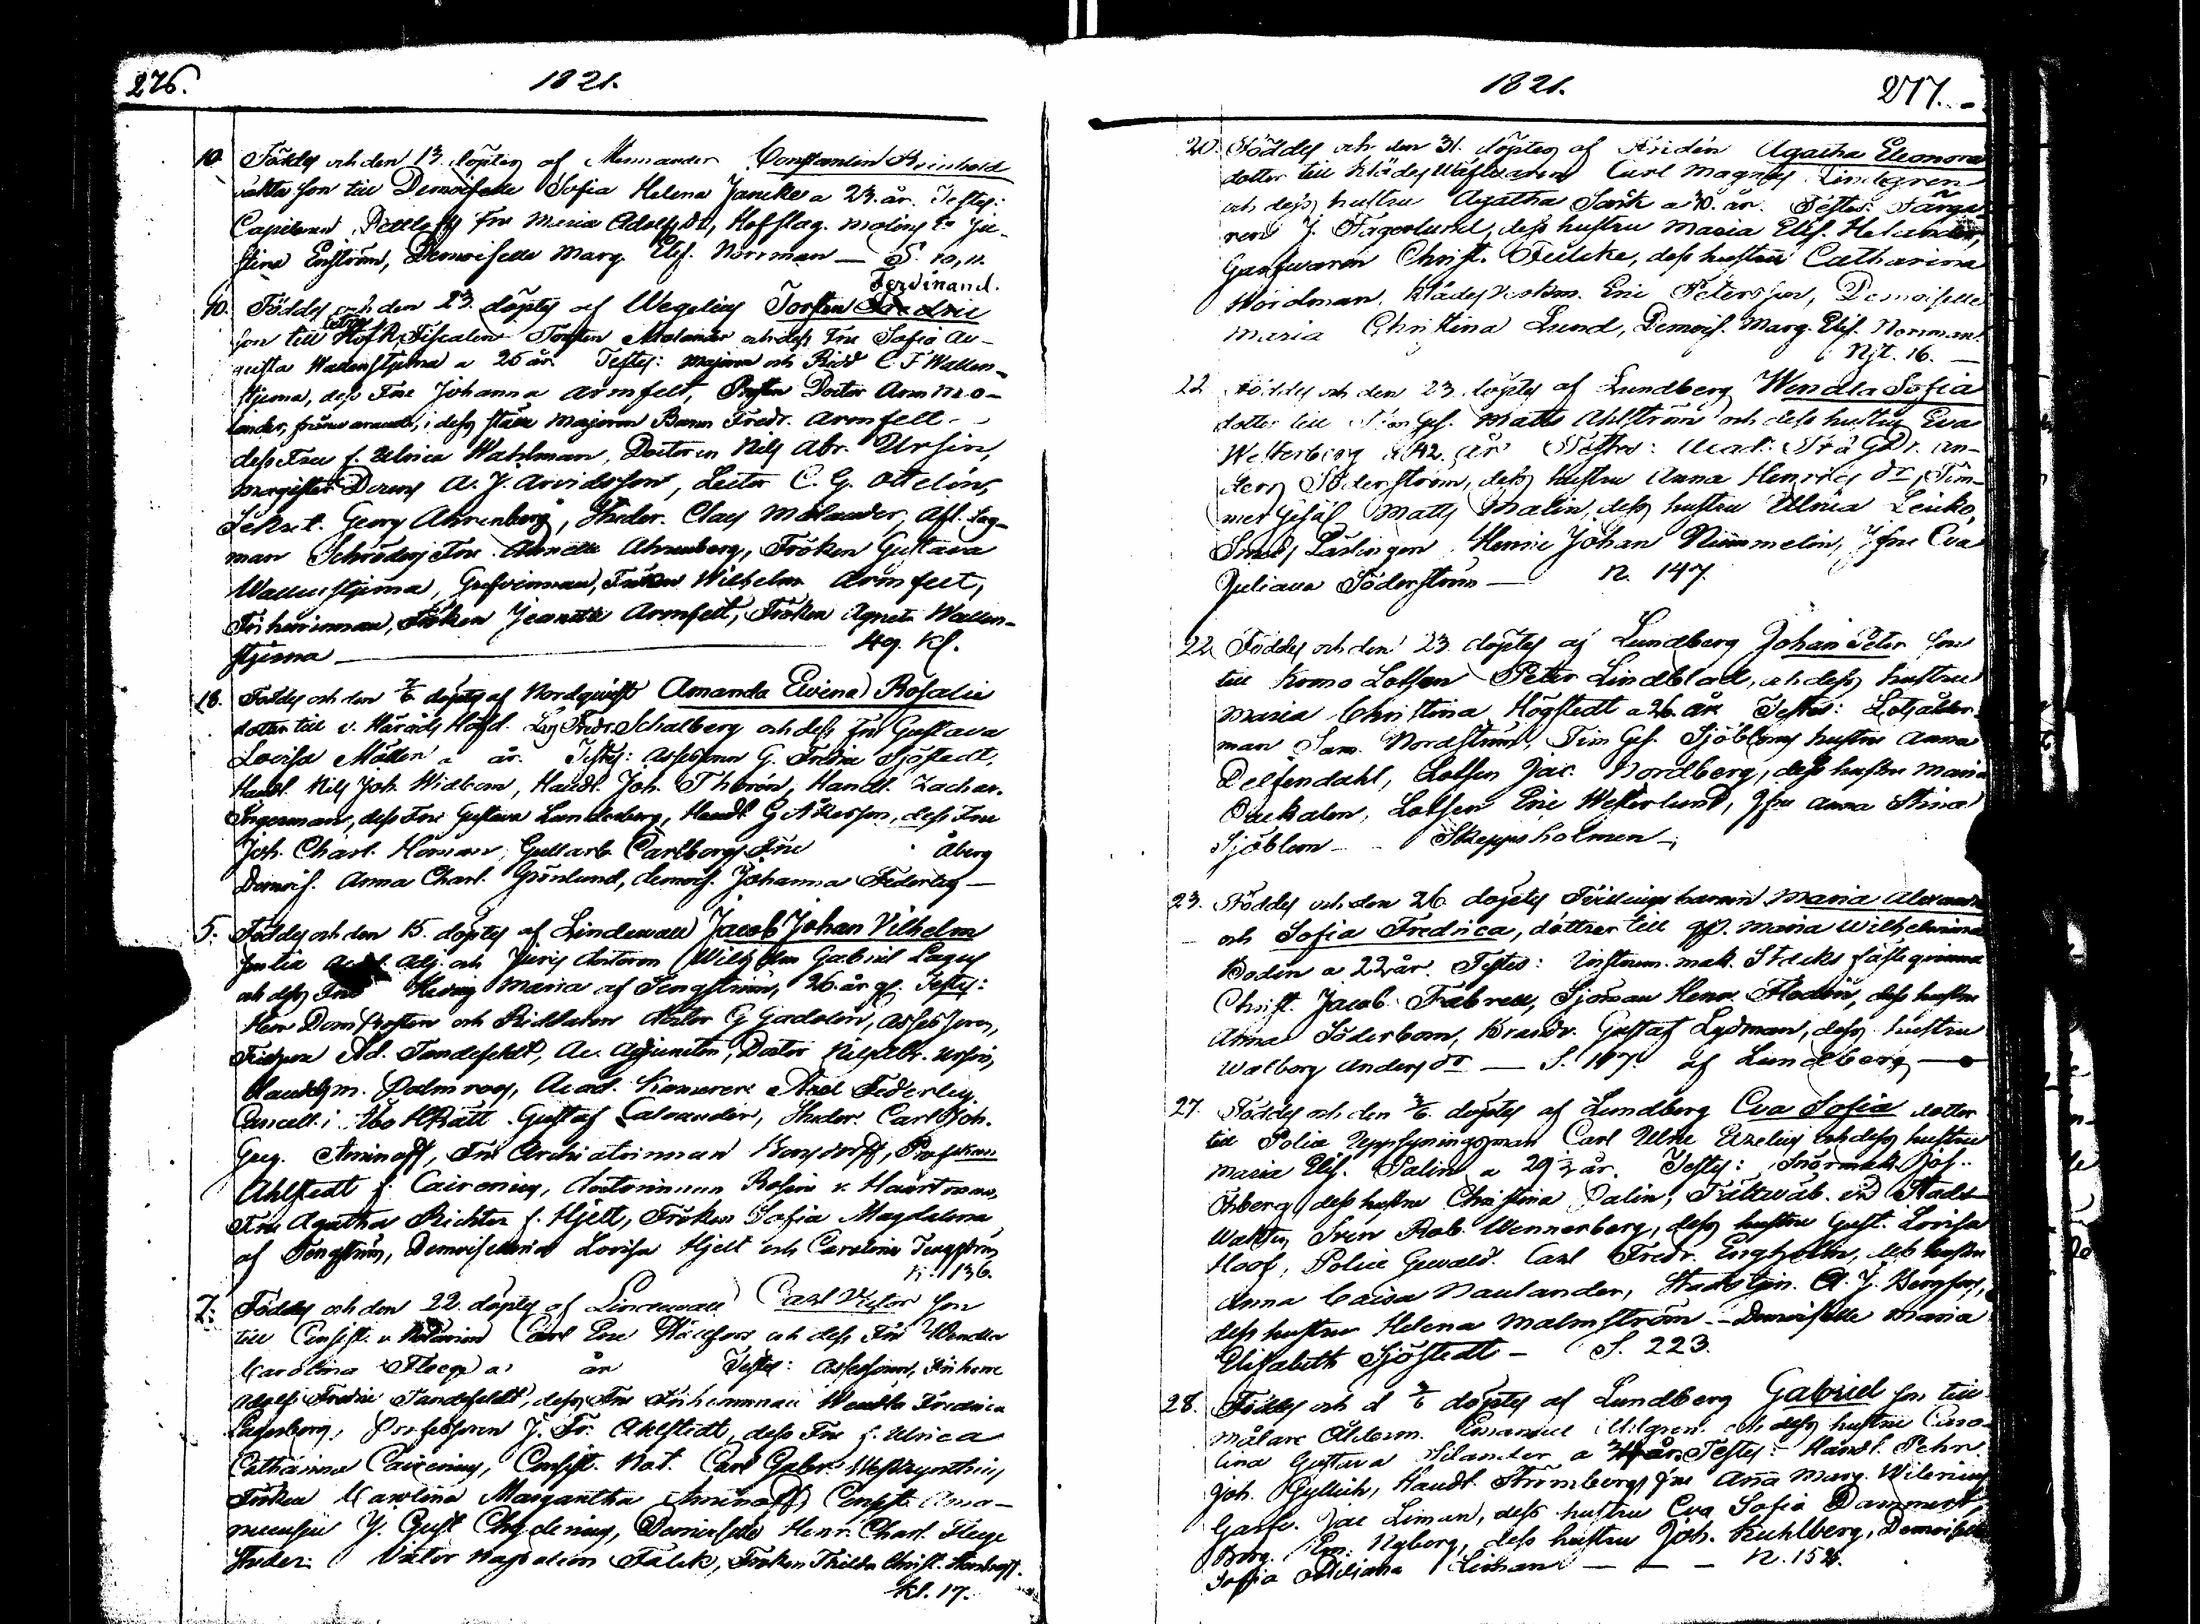 276.
1821.
10. Föddes och den 13. döptes af Mennander Constantin Reinhold
oäkta son till Demoiselle Sofia Helena Jancke a 23. år. Testes:
Capitenen Fru Maria Adolfs Dr, Hofslag.
stina Engström, Demoiselle Marg. Elis. Norrman — S. 10, 11.
Ferdinand.
10. Föddes och den 23. döptes af Wegelius Torsten Fredric
son till Hofr. Fiscalen Torsten Molander och dess Fru Sofia Au-
gusta Wallenstjerna a 26 år. Testes: Majoren och Ridd C. F Wallen-
stjerna, dess Fru Johanna Armfelt, Doctor Aron Mo-
lander, frånvarande, i dess ställe Majoren Baron Fredr. Armfelt
dess Fru f. Ulrica Wahlman, Doctoren Nils Abr. Ursin,
Magister Docens A. J. Arvidsson, Lector C. G. Ottelin,
Sekret. Georg Ahrenberg, Studer. Claes Molander, Afl. Lag-
man Schröders Fru Ahrenberg, Fröken Gustava
Wallenstjerna, Grefvinnan, Fröken Wilhelm. Armfelt,
Friherinnan, Fröken Jeanette Armfelt, Fröken Agneta Wallen-
stjerna — 49. Kl.
18. Föddes och den döptes af Nordqvist Amanda Evina Rosalie
dotter till v. Härads Höfd. Fredr. Schalberg och dess Fru Gustava
Lovisa Möller a år. Testes: Assessoren G. Fredric Sjöstedt,
Handl. Nils Joh. Widbom, Handl. Joh. Thorén, Handl. Zachar.
Ingerman, dess Fru Gustava Lundenberg, Handl G Åkerson, dess Fru
Joh. Charl. Homan, Gullarb. Carlborgs Fru Åberg
Demois. Anna Charl. Grönlund, demois. Johanna Federley —
5. Föddes och den 15. döptes af Lindewall Jacob Johan Vilhelm
son till Adj. och Juris doctoren Wilhelm Gabriel Lagus
och dess Fru Hedvig Maria af Tengström, 26. år gl. Testes:
Herr Dom Prosten och Riddaren doctor G Gadolin, Assessoren,
Friherre Ad. Tandefeldt, Ac. Adjuncten, Doctor Nils Abr. Ursin,
Handelsm. Palmroos, Acad. Kamerer Axel Federley.
Cancell. i Åbo HRätt Gustaf Calander, Studer. Carl Joh.
Greg. Aminoff, Fru Archiatrinnan Bonsdorff, Professorskan
Ahlstedt f. Cairenius, doctorinnan Rosine v. Haartman,
Fru Agatha Richter f. Hjelt, Fröken Sofia Magdalena
af Tengström, Demoisellerna Lovisa Hjelt och Carolina Tengström
N. 136.
7. Föddes och den 22. döptes af Lindewall Carl Victor son
till Consist. v. Notarien Carl Eric Wäckfors och dess Fru Wendla
Carolina Fleege a år Testes: Assessoren, Friherre
Adolf Fredric Tandefeldt, dess Fru Friherinnan Wendla Fredrica
Lagerborg, Professoren J. Fr. Ahlstedt, dess Fru f. Ulrica
Catharina Cairenius, Consist. Not. Carl Gabr. Westzynthius
Fröken Carolina Margaretha Aminoff, Consist. Ama-
nuensen J. Gust. Chydenius, Demoiselle Henr. Charl. Fleege
Studer. Victor Napoleon Falck, Fröken Thilda Christ.
kl. 17.
1821.
277.
20. Föddes och den 31. döptes af Fridén Agatha Eleonora
dotter till Klädesväfvaren Carl Magnus Lindegren
och dess hustru Agatha Sark a 40. år. Testes: Färga-
ren J. Fagerlund, dess hustru Maria Elis. Helander,
Garfvaren Christ. Feilcke, dess hustru Catharina
Nordman, Klädes Eric Petersson, Demoiselle
Maria Christina Lund, Demois. Marg. Elis. Norrman.
Njt. 16. —
22. Föddes och den 23. döptes af Lundberg Wendla Sofia
dotter till Ges. Matts Ahlström och dess hustru Eva
Westerberg a 42. år Testes: Acad: An-
ders Söderström, dess hustru Anna Henrics dr, Tim-
mer Gesäl Matts Malin, dess hustru Ulrica Leuko,
Smeds Lärlingen Henric Johan Nummelin, Jfru Eva
Juliana Söderström — N. 147.
22. Föddes och den 23. döptes af Lundberg Johan Peter son
till Krono Lotsen Peter Lindblad, och dess hustru
Maria Christina Högstedt a 26. år Testes: Lotsålder-
man Sam. Nordström, Tim Ges. Sjöbloms hustru Anna
Delfendahl, Lotsen Jac. Nordberg, dess hustru Maria
Lotsen Eric Westerlund, Jfru Anna Stina
Sjöblom — Skeppsholmen —
23. Föddes och den 26. döptes Tvillinge barnen Maria Alexandra
och Sofia Fredrica, döttrar till qp. Maria Wilhelmina
Bodin a 22 år. Testes: Instrum. mak. Stecks fästeqvinna
Christ. Jacob. Fabrell, Sjöman Henr. Flodin, dess hustru
Anna Söderbom, Brandv. Gustaf Lydman, dess hustru
Walborg Anders dr — S. 107. af Lundberg —
27. Föddes och den 3/6. döptes af Lundberg Eva Sofia dotter
till Police Uppsyningsman Carl Ulric Ezelius och dess hustru
Maria Elis. Palin a 29 3/4 år. Testes: Snörmak. Jos..
Öhberg, dess hustru Christina Palin, Fältwäb. vid Stads
Wakten Sven Rob. Wennerberg, dess hustru Gust. Lovisa
Hoof, Police Gevald. Carl Fredr. Engholm, dess hustru
Anna Caisa Naulander, Stadstjen. A. J. Bergfors,
dess hustru Helena Malmström — Demoiselle Maria
Elisabeth Sjöstedt — S. 223.
28. Föddes och d 3/6 döptes af Lundberg Gabriel son till
Målare Ålderm. Emanuel Milgren och dess hustru Caro-
lina Gustava Silander a år. Testes: Handl. Pehr
Joh. Gylich, Handl. Strömbergs fru Anna Marg. Wilenius
Garfv. Jac Liman, dess hustru Eva Sofia Dammert,
Borg. Em. Nyborg, dess hustru Joh. Kuhlberg, Demoiselle
Sofia Liman — — — N. 152.